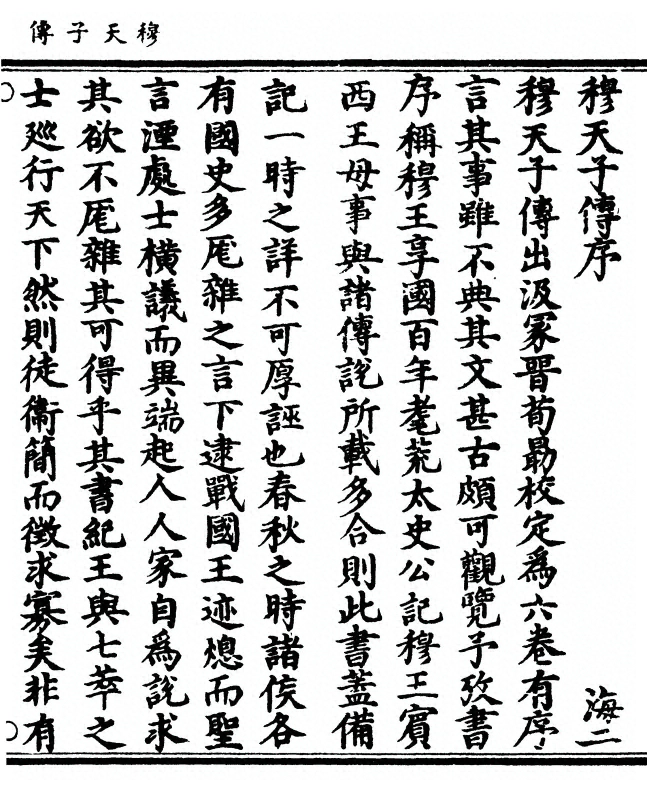 穆天子傳
穆天子傳序
海二
穆天子傳出汲冢晉荀勗校定爲六卷有序
言其事雖不典其文甚古頗可觀覽予攷書
序稱穆王享國百年耄荒太史公記穆王賓
西王母事與諸傳説所載多合則此書蓋備
記一時之詳不可厚誣也春秋之時諸侯各
有國史多厖雜之言下逮戰國王迹熄而聖
言湮處士横議而異端起人人家自爲説求
其欲不厖雜其可得乎其書紀王與七萃之
士廵行天下然則徒衞簡而徵求寡矣非有